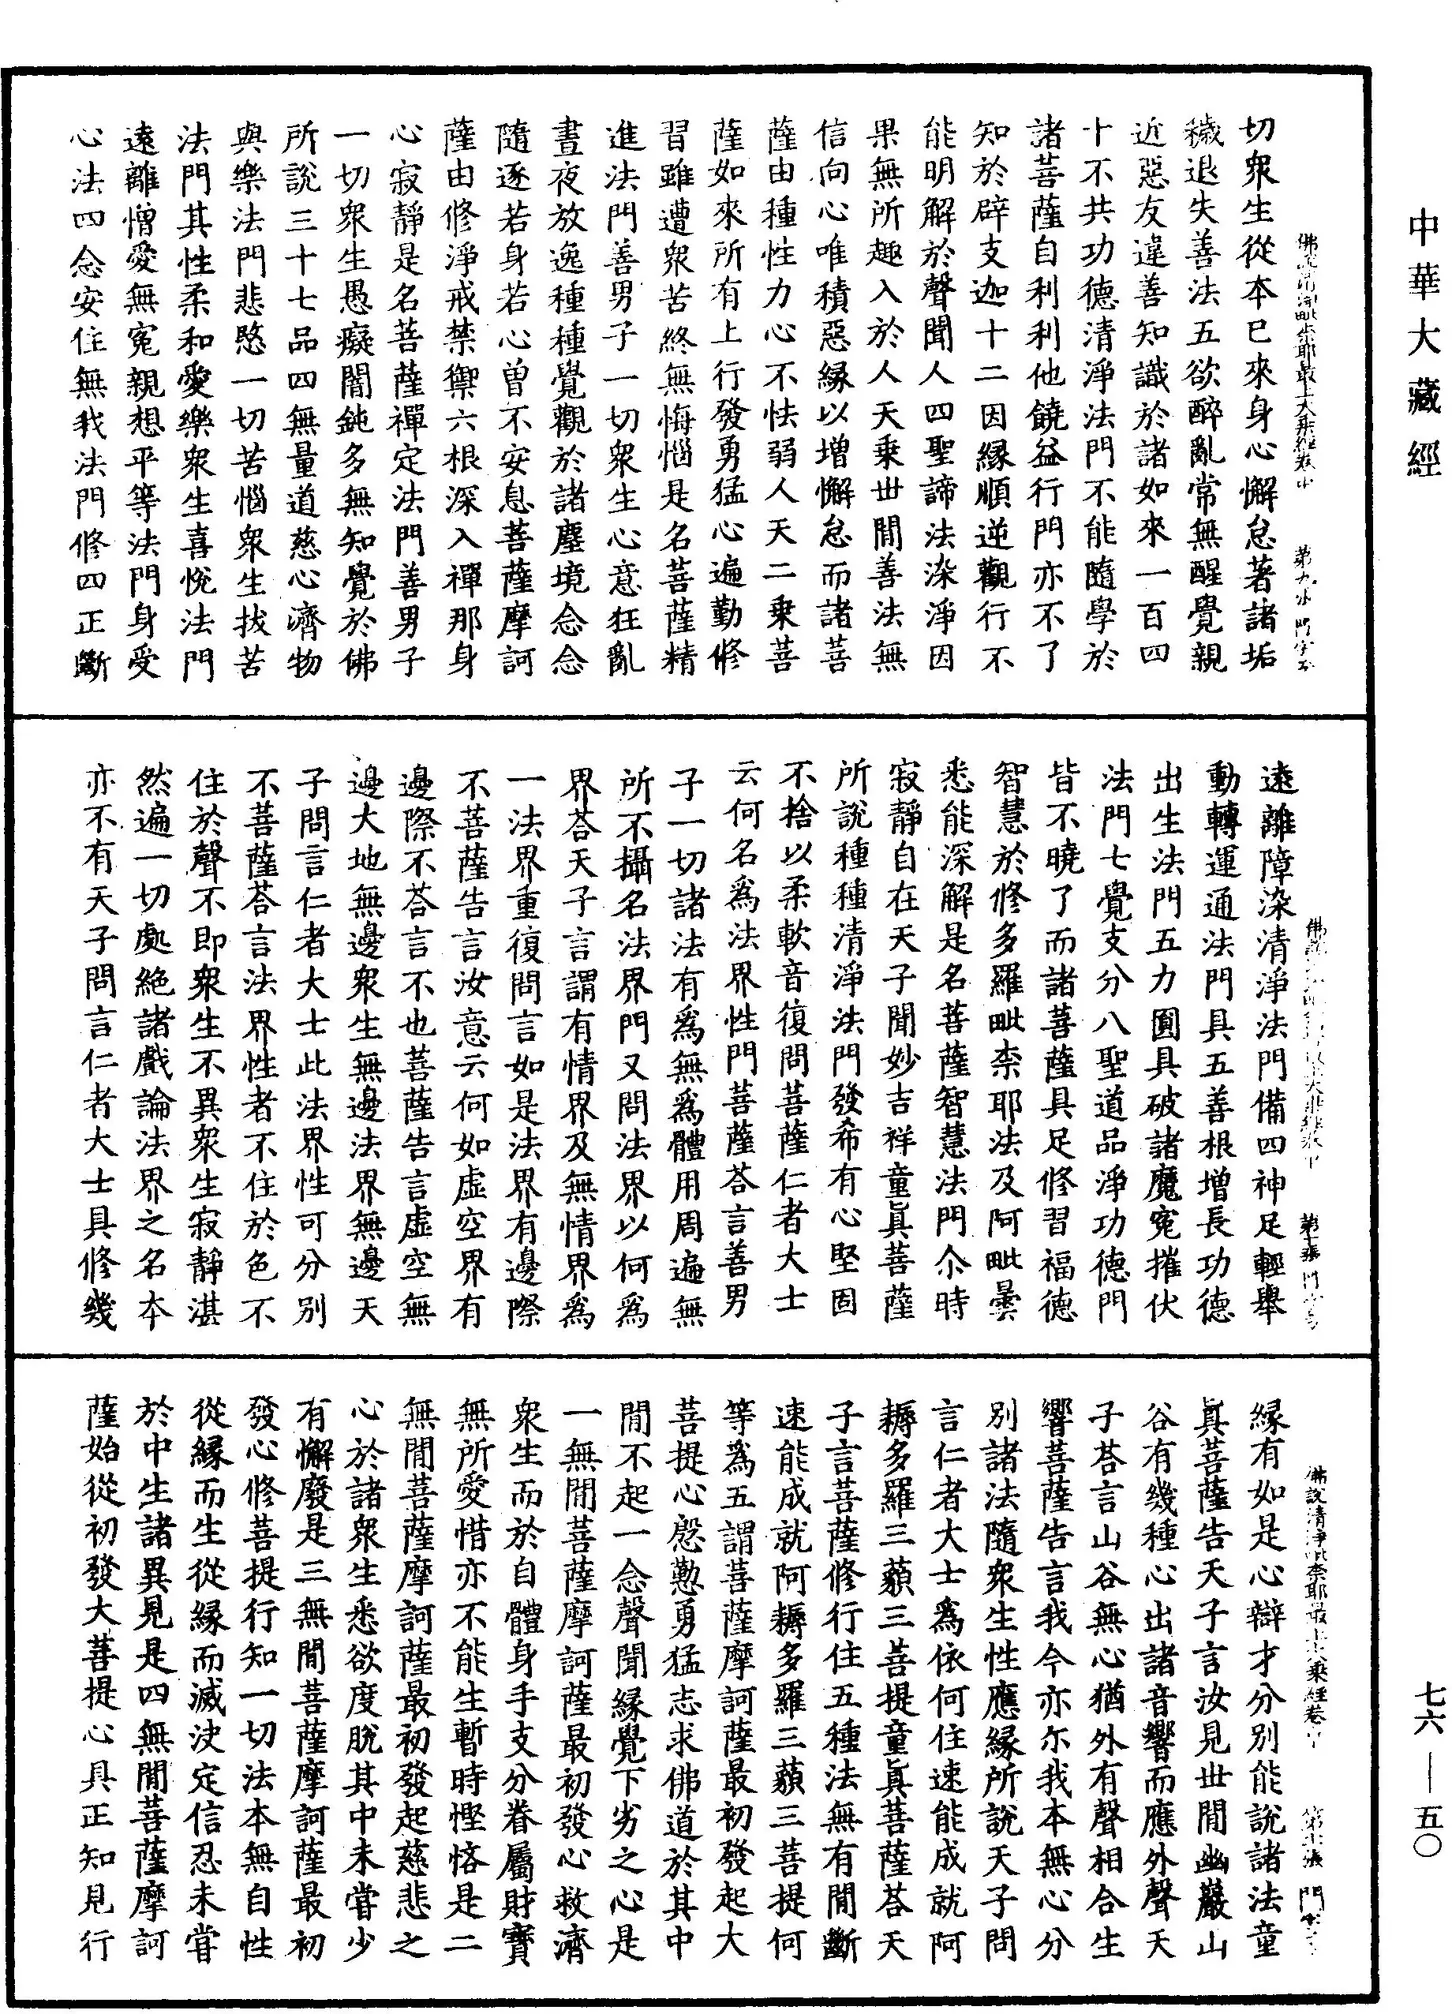 中華大藏經
七六—五〇
切衆生從本已來身心懈怠著諸垢
穢退失善法五欲醉亂常無醒覺親
近惡友違善知識於諸如來一百四
十不共功德清淨法門不能隨學於
諸菩薩自利利他饒益行門亦不了
知於辟支迦十二因緣順逆觀行不
能明解於聲聞人四聖諦法染淨因
果無所趣入於人天乘世間善法無
信向心唯積惡緣以增懈怠而諸菩
薩由種性力心不怯弱人天二乘菩
薩如來所有上行發勇猛心遍勤修
習雖遭衆苦終無悔惱是名菩薩精
進法門善男子一切衆生心意狂亂
晝夜放逸種種覺觀於諸塵境念念
隨逐若身若心曾不安息菩薩摩訶
薩由修淨戒禁禦六根深入禪那身
心寂靜是名菩薩禪定法門善男子
一切衆生愚癡闇鈍多無知覺於佛
所說三十七品四無量道慈心濟物
與樂法門悲愍一切苦惱衆生拔苦
法門其性柔和愛樂衆生喜悅法門
遠離憎愛無冤親想平等法門身受
心法四念安住無我法門修四正斷
遠離障染清淨法門備四神足輕舉
動轉運通法門具五善根增長功德
出生法門五力圓具破諸魔冤摧伏
法門七覺支分八聖道品淨功德門
皆不曉了而諸菩薩具足修習福德
智慧於修多羅毗柰耶法及阿毗曇
悉能深解是名菩薩智慧法門尒時
寂靜自在天子聞妙吉祥童真菩薩
所說種種清淨法門發希有心堅固
不捨以柔軟音復問菩薩仁者大士
云何名為法界性門菩薩荅言善男
子一切諸法有為無為體用周遍無
所不攝名法界門又問法界以何為
界荅天子言謂有情界及無情界為
一法界重復問言如是法界有邊際
不菩薩告言汝意云何如虛空界有
邊際不荅言不也菩薩告言虛空無
邊大地無邊衆生無邊法界無邊天
子問言仁者大士此法界性可分別
不菩薩荅言法界性者不住於色不
住於聲不即衆生不異衆生寂靜湛
然遍一切處絕諸戲論法界之名本
亦不有天子問言仁者大士具修幾
佛說清淨毗柰耶最上大乘經卷中
緣有如是心辯才分別能說諸法童
真菩薩告天子言汝見世間幽巖山
谷有幾種心出諸音響而應外聲天
子荅言山谷無心猶外有聲相合生
響菩薩告言我今亦尒我本無心分
別諸法隨衆生性應緣所說天子問
言仁者大士為依何住速能成就阿
耨多羅三藐三菩提童真菩薩荅天
子言菩薩修行住五種法無有間斷
速能成就阿耨多羅三藐三菩提何
等為五謂菩薩摩訶薩最初發起大
菩提心慇懃勇猛志求佛道於其中
間不起一念聲聞緣覺下劣之心是
一無間菩薩摩訶薩最初發心救濟
衆生而於自體身手支分眷屬財寶
無所愛惜亦不能生暫時慳悋是二
無間菩薩摩訶薩最初發起慈悲之
心於諸衆生悉欲度脫其中未嘗少
有懈廢是三無間菩薩摩訶薩最初
發心修菩提行知一切法本無自性
從緣而生從緣而滅決定信忍未甞
於中生諸異見是四無間菩薩摩訶
薩始從初發大菩提心具正知見行